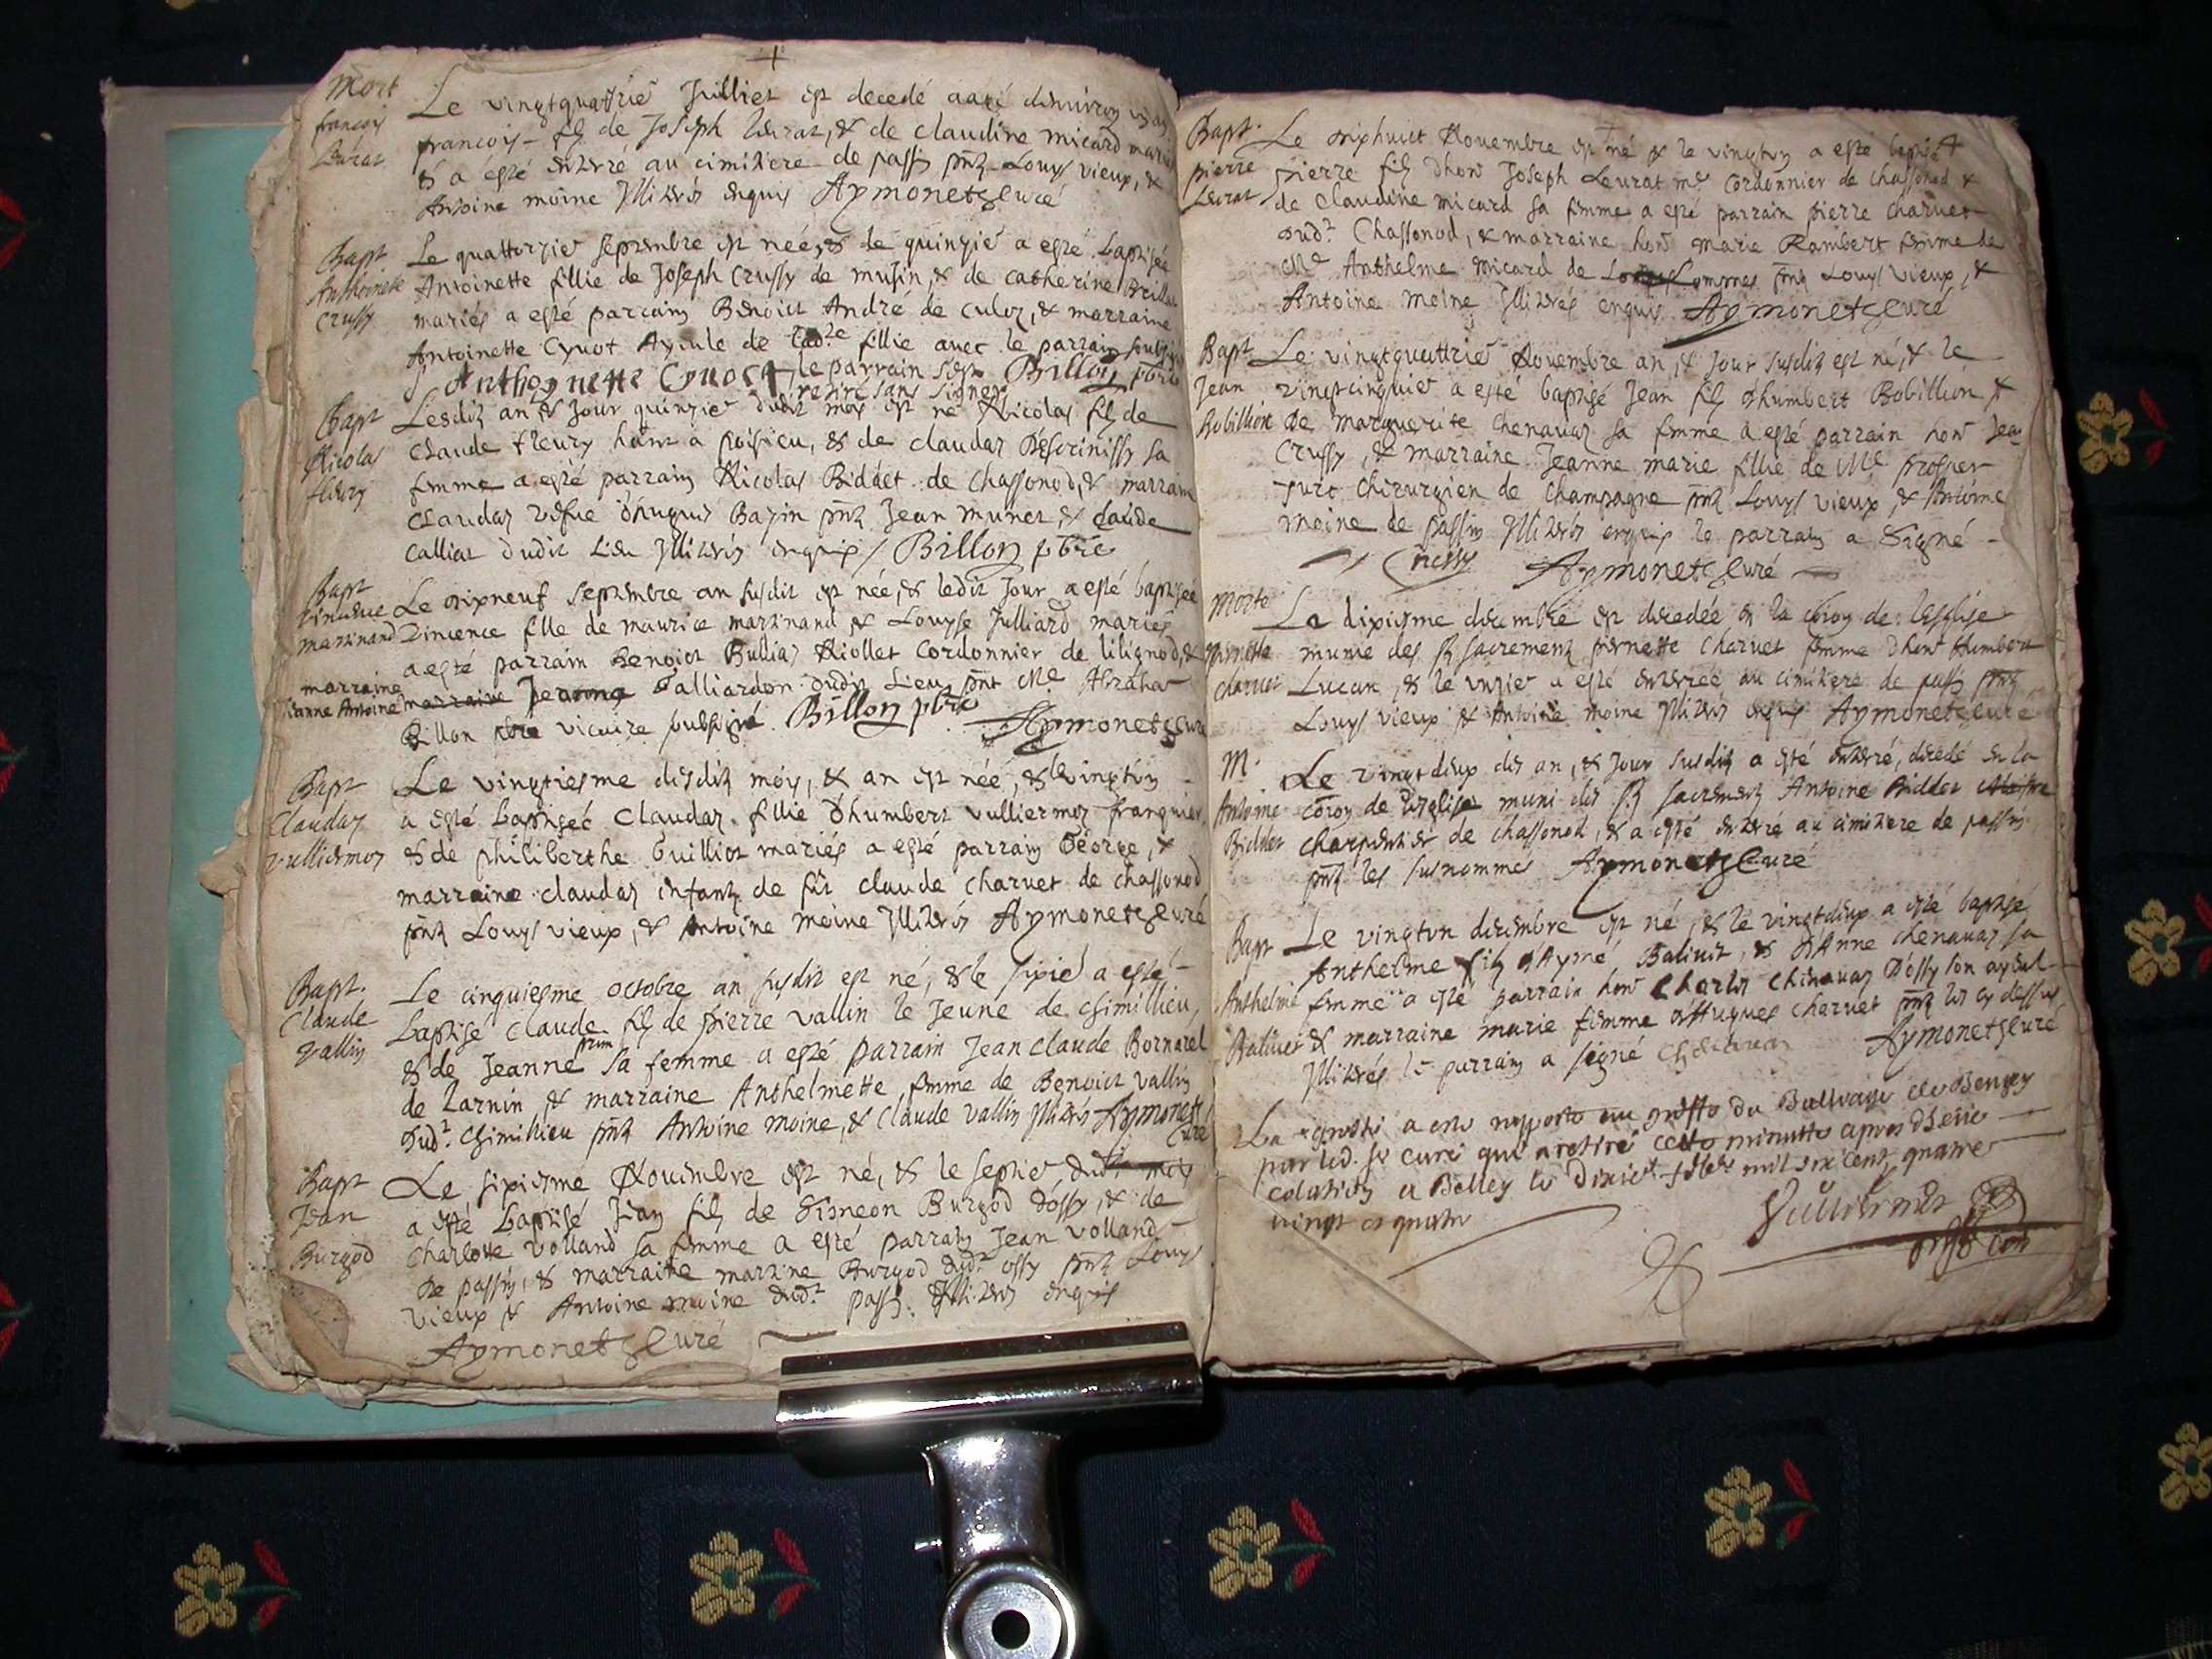 Mort
françois
Leurat
Le vingtquattrie Juilliet est decedé aagé denviron
françois fils de Joseph Leurat, & de claudine micard mariés
& a esté enterré au cimitiere de passin pnts Louys vieux, &
Antoine moine Illitrés enquis Aymonet Curé
Bapt
Anthoinette
Crussy
Le quattorzie septembre est née, & le quinzie a esté baptisée
Antoinette fillie de Joseph Crussy de musin, & de catherine Brillat
mariés a esté parrain Benoict André de culoz, & marraine
Antoinette Cyuot Ayeule de lad.te fillie avec le parrain
Anthoynette Cyuoct, le parrain s'est Billon pbre
retiré sans signer
Bapt
Nicolas
fleury
Lesdits an & Jour quinzie dudit mois est né Nicolas fils de
Claude fleury habit a poisieu, & de claudaz sa
femme a esté parrain Nicolas Biddet de Chassonod, & marraine
Claudaz vefue d'hugues Bazin pnts Jean munet & Claude
Calliat dudit lieu Illitrés enquis / Billon pbre
Bapt
vincence
martinand
Le dixneuf septembre an susdit est née, & ledit Jour a esté baptisée
Vincence fille de maurice martinand & Louyse Julliard mariés
a esté parrain Benoict Bulliaz Riollet Cordonnier de lilignod, &
marraine
Jeanne Antoine marraine Jeanne Talliardon dudit Lieu pnt Me Abraham
Billon pbre vicaire soubsigné Billon pbre Aymonet Curé
Bapt
Claudaz
Vulliermoz
Le vingtiesme desdits mois, & an est née, & le vingtvn
a esté baptisée Claudaz fillie d'humbert Vulliermoz
& de philiberthe Guilliot mariés a esté parrain George, &
marraine claudaz enfants de feu claude charuet de chassonod
pnts Louys vieux, & Antoine moine Illitrés Aymonet Curé
Bapt.
Claude
Vallin
Le cinquiesme octobre an susdit est né, & le sixie a esté
baptisé Claude fils de pierre vallin le Jeune de chimillieu,
& de Jeanne prim sa femme a esté parrain Jean claude Bornarel
de Larnin & marraine Anthelmette femme de Benoict vallin
dud.t chimillieu pnts Antoine moine, & Claude vallin Illitrés Aymonet
Curé
Bapt
Jean
Burgod
Le sixiesme Nouembre est né, & le septie dud.t mois
a esté baptisé Jean fils de Simeon Burgod d'ossy, & de
Charlotte Volland sa femme a esté parrain Jean volland
de passin, & marraine martine Burgod dud.t ossy pnts Louys
vieux & Antoine moine dud.t passin Illitrés enquis
Aymonet Curé
Bapt.
pierre
Leurat
Le dixhuict Nouembre est né & le vingtvn a esté baptisé
pierre fils d'hon Joseph Leurat me Cordonnier de chassonod &
de Claudine micard sa femme a esté parrain pierre charuet
dud.t Chassonod, & marraine hon marie Rambert femme de
Me Anthelme micard de Lommes pnts Louys vieux, &
Antoine moine Illitrés enquis Aymonet Curé
Bapt
Jean
Bobillion
Le vingtquattrie Nouembre an, & Jour susdits est né, & le
vingtcinquie a esté baptisé Jean fils d'humbert Bobillion, &
De marguerite Chenauaz sa femme a esté parrain hon Jean
Crussy, & marraine Jeanne marie fillie de Me prosper
chirurgien de Champagne pnts Louys vieux, & Antoine
moine de passin Illitrés enquis le parrain a signé
Crussy Aymonet Curé
Morte
pernette
Charuet
Le dixiesme decembre est decedée en la coion de lesglise
munie des sts sacrements pernette Charuet femme d'hont Humbert
Lucan, & le vnzie a esté enterrée au cimitiere de passin pnts
Louys vieux & Antoine moine Illitrés enquis Aymonet Curé
M.
Antoine
Biddet
Le vingtdeux des an, & Jour susdits a esté enterré, decedé en la
coion de lesglise muni des sts sacrements Antoine Biddet Maistre
charpentier de chassonod, & a esté enterré au cimitiere de passin
pnts les susnommés Aymonet Curé
Bapt
Anthelme
Baliuet
Le vingtvn decembre est né, & le vingtdeux a esté baptisé
Anthelme fils d'Aymé Baliuet, & d'Anne chenauaz sa
femme a esté parrain hon Charles Chenauaz D'ossy son ayeul
& marraine marie femme d'Hugues Charuet pnts les cy dessus
Illitrés le parrain a signé Chenauaz Aymonet Curé
La grosse a esté rapporté au greffe du Balliage de Beugey
par led. sr curé qui a retiré cette minutte apres dheue
colation a Belley le dixie mil six cent quatre
vingt et quatre
Vulliermet